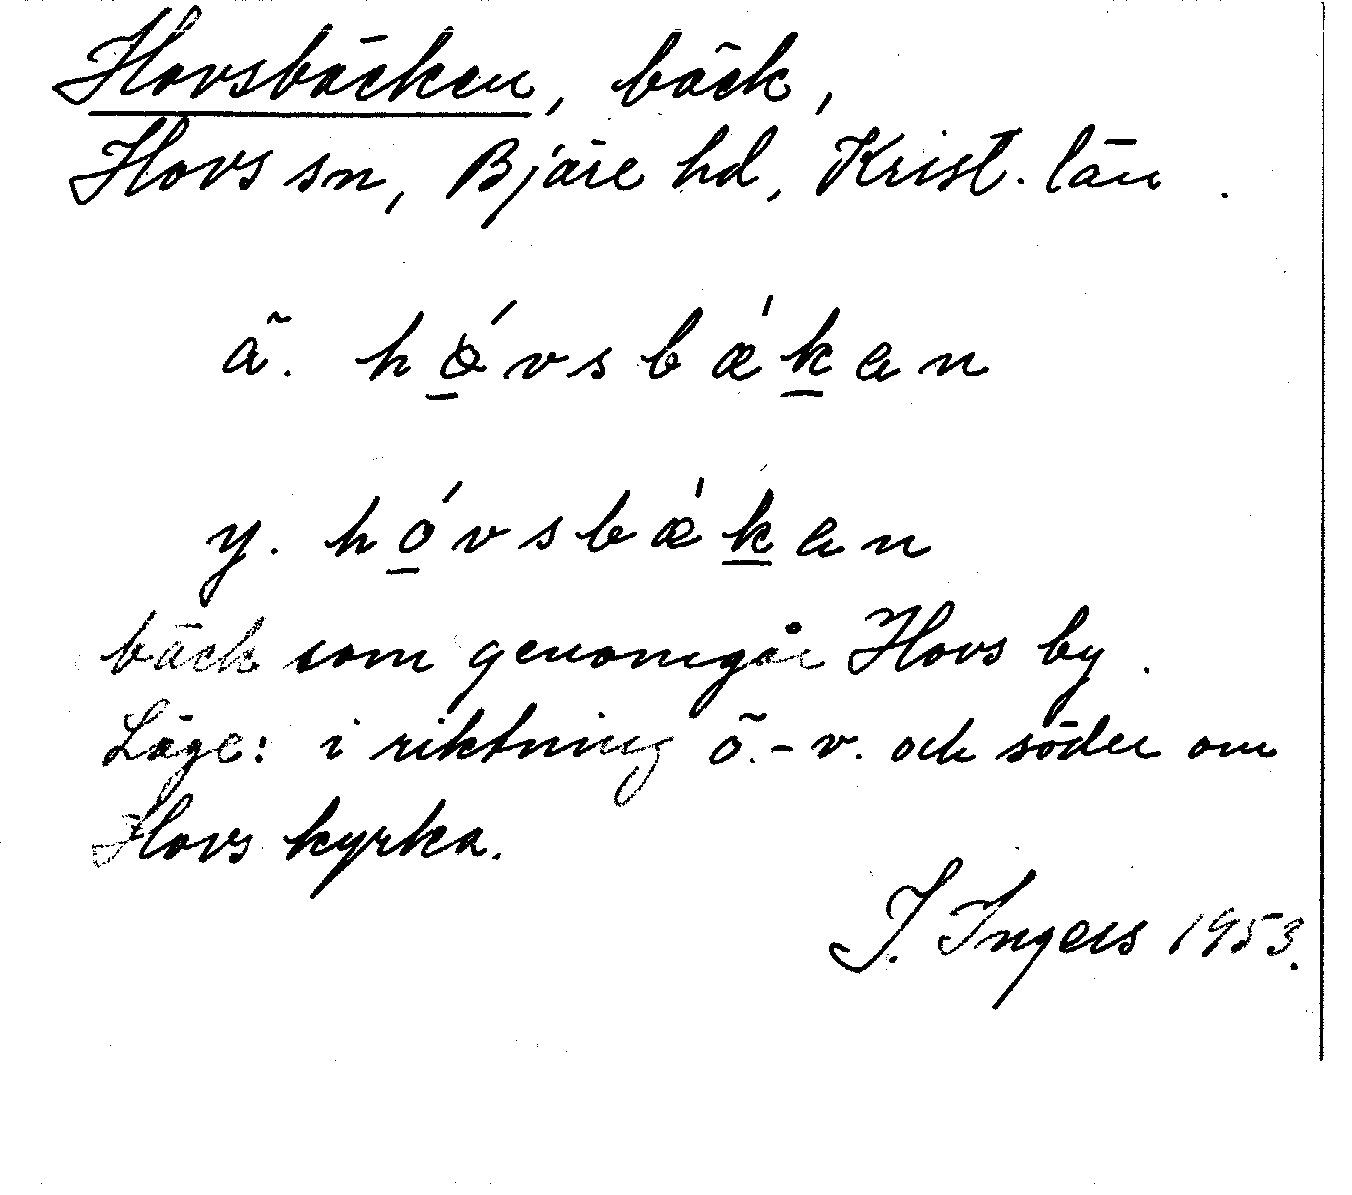 Hovsbäcken, bäck,
Hovs sn, Bjäre hd, Krist. län.
ä. hǿvsbæ̍kan
y. hóvsbæ̍kan
bäck som genomgår Hovs by.
Läge: i riktning ö.-v. och söder om
Hovs kyrka.
I. Ingers 1953.